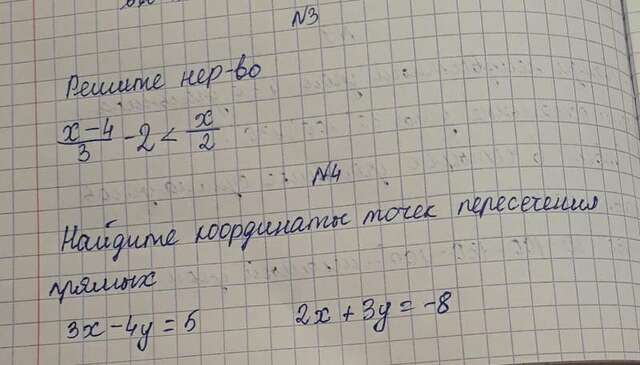 N3
Решите нер-во
x-4/3 - 2 < x/2
N4
Найдите координаты точек пересечения
прямых
3x - 4y = 5 2x + 3y = -8